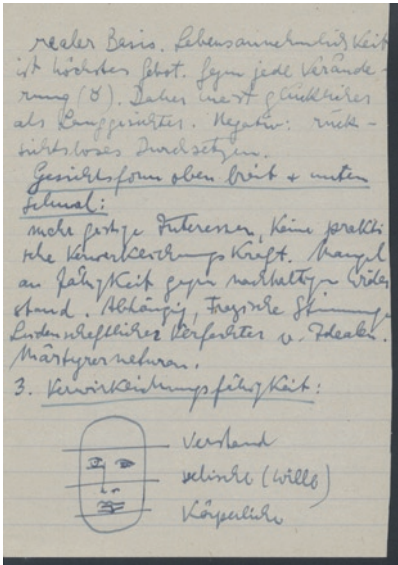 realer Basis. Lebensannehmlichkeit
ist höchstes Gebot. Gegen jede Verände-
rung (♉). Daher meist glücklicher
als Langgesichter. Negativ: rück-
sichtsloses Durchsetzen.
Gesichtsform oben breit + unten
schmal:
mehr geistige Interessen, keine prakti
sche Verwirklichungskraft. Mangel
an Fähigkeit gegen nachhaltigen Wider
stand. Abhängig, Tragische Stimmung
Leidenschaftlicher Verfechter v. Idealen.
Märtyrernaturen.
3. Verwirklichungsfähigkeit:
Verstand
seelische (Wille)
Körperliche